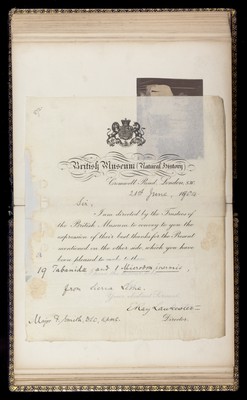 British Museum (Natural History)
Cromwell Road, London, S.W.
21st June, 1904
Sir,
I am directed by the Trustees of
the British Museum to convey to you the
expression of their best thanks for the Present
mentioned on the other side, which you have
been pleased to
19 Tabanidae, and 1
from Sierra Leone.
E. Ray Lankester
Director.
Major F. Smith, D.S.O.,